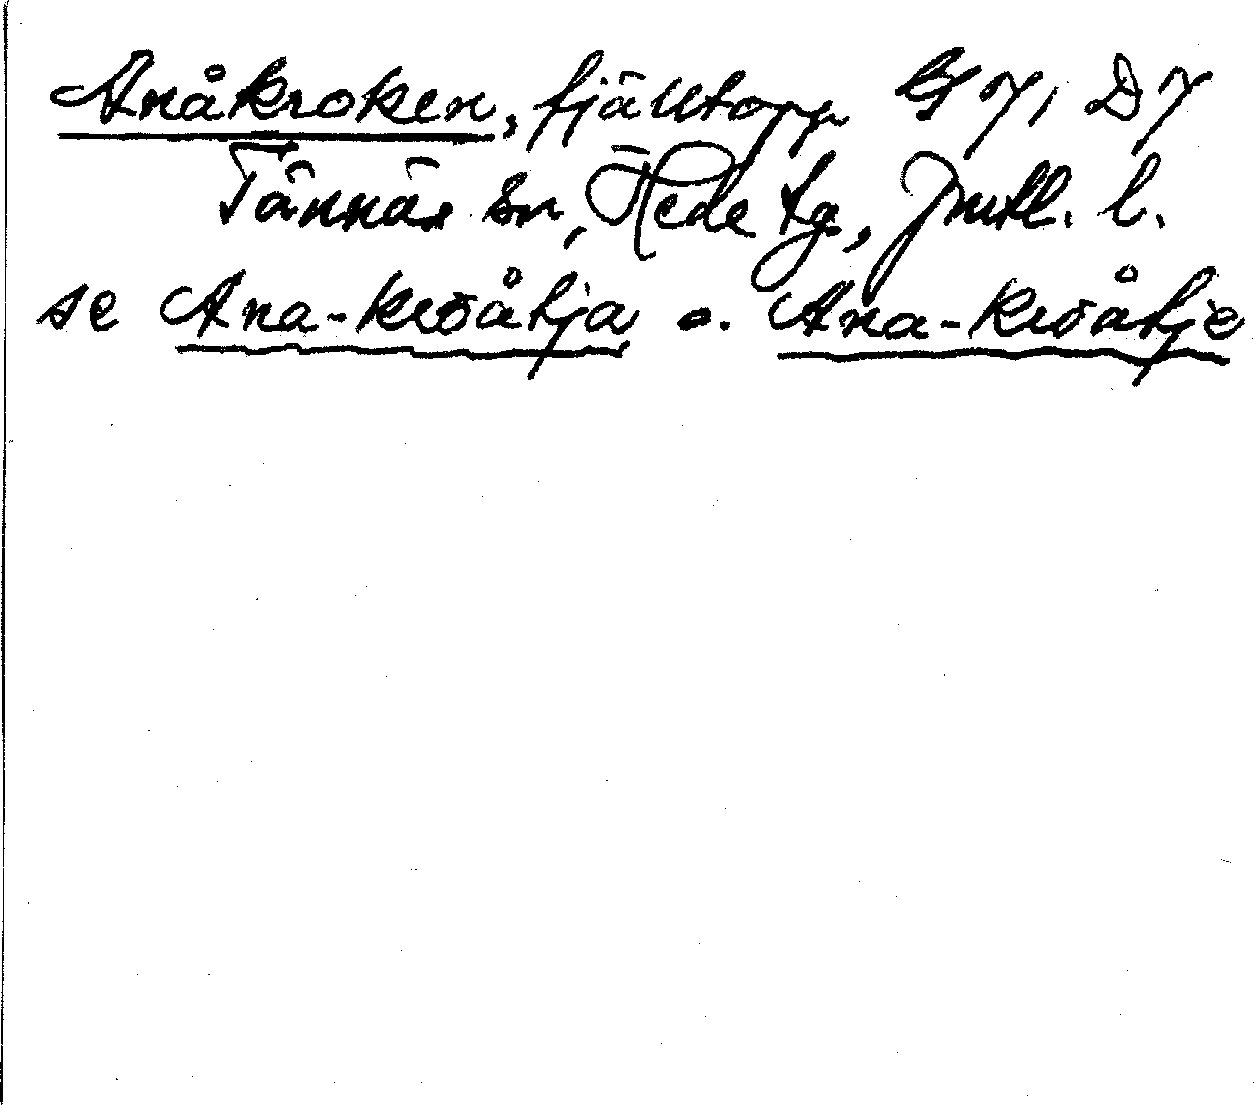 Anåkroken, fjälltopp G7, D7
Tännäs sn, Hede tg, Jmtl. l.
se Ana-kroåhja o. Ana-kroåhje